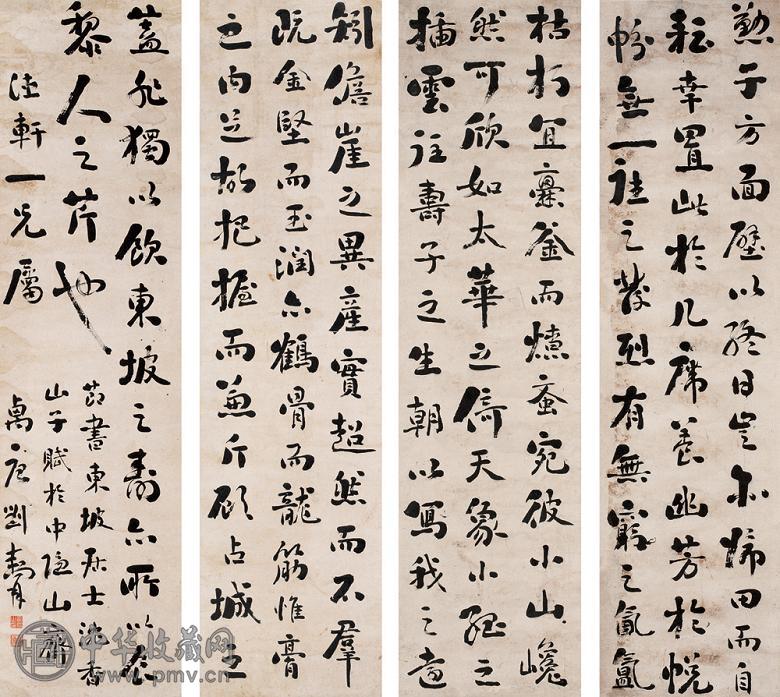 矧儋崖之異產實超然而不群
既金堅而玉潤亦鶴骨而龍筋惟膏
之内足故把握而兼斤顧占城之
枯朽宜爨釜而燎蚉宛彼小山巉
然可欣如太華之倚天象小孤之
插雲往壽子之生朝以寫我之老
勤子方面壁以終日豈亦歸田而自
耘幸置此於几席養幽芳於帨
帉無一往之發烈有無窮之氤氳
蓋非獨以飲東坡之壽亦所以食
黎人之芹也
節書東坡居士沈香
山子賦於中隱山齋
軒一兄屬
劉
中华收藏网
www.pmv.cn